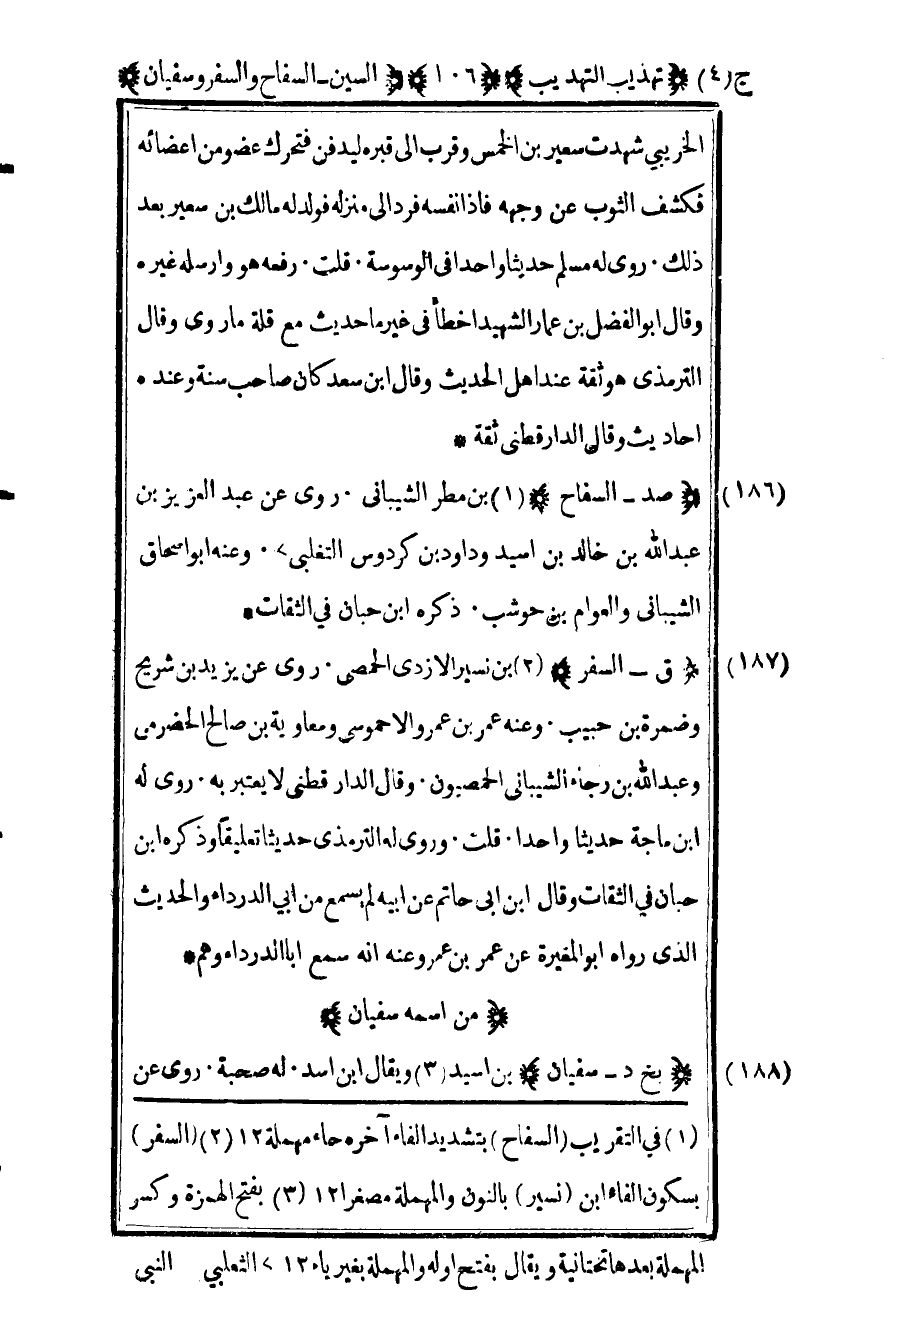 ج (٤) ﴿ تهذيب التهذيب ﴾ ﴿ ١٠٦ ﴾ ﴿ السين ـ السفاح والسفر وسفيان ﴾
الخريبي شهدت سعير بن الخمس وقرب الى قبره ليدفن فتحرك عضو من اعضائه
فكشف الثوب عن وجهه فاذا نفسه فرد الى منزله فولد له مالك بن سعير بعد
ذلك ٠ روى له مسلم حديثا واحدا فى الوسوسة ٠ قلت ٠ رفعه هو وارسله غيره
وقال ابو الفضل بن عمار الشهيد اخطأ فى غير ما حديث مع قلة ما روى وقال
الترمذى هو ثقة عند اهل الحديث وقال ابن سعد كان صاحب سنة وعنده
احاديث وقال الدار قطنى ثقة *
(١٨٦) ﴿ صد ـ السفاح ﴾ (١) بن مطر الشيبانى ٠ روى عن عبد العزيز بن
عبد الله بن خالد بن اسيد وداود بن كردوس التغلبى > ٠ وعنه ابو اسحاق
الشيبانى والعوام بن حوشب ٠ ذكره ابن حبان في الثقات *
(١٨٧) ﴿ ق ـ السفر ﴾ (٢) بن نسير الازدى الحمصي ٠ روى عن يزيد بن شريح
وضمرة بن حبيب ٠ وعنه عمر بن عمرو الاحموسي ومعاوية بن صالح الحضرمى
وعبد الله بن رجاء الشيبانى الحمصيون ٠ وقال الدار قطنى لا يعتبر به ٠ روى له
ابن ماجة حديثا واحدا ٠ قلت ٠ وروى له الترمذى حديثا تعليقاً وذكره ابن
حبان في الثقات وقال ابن ابى حاتم عن ابيه لم يسمع من ابي الدرداء والحديث
الذى رواه ابو المغيرة عن عمر بن عمرو عنه انه سمع ابا الدرداء وهم *
﴿ من اسمه سفيان ﴾
(١٨٨) ﴿ بخ د ـ سفيان ﴾ بن اسيد (٣) ويقال ابن اسد ٠ له صحبة ٠ روى عن
(١) في التقريب (السفاح) بتشديد الفاء آخره حاء مهملة ١٢ (٢) (السفر)
بسكون الفاء ابن (نسير) بالنون والمهملة مصغرا ١٢ (٣) بفتح الهمزة وكسر
المهملة بعدها تحتانية ويقال بفتح اوله والمهملة بغير ياء ١٢ > الثعلبي النبى